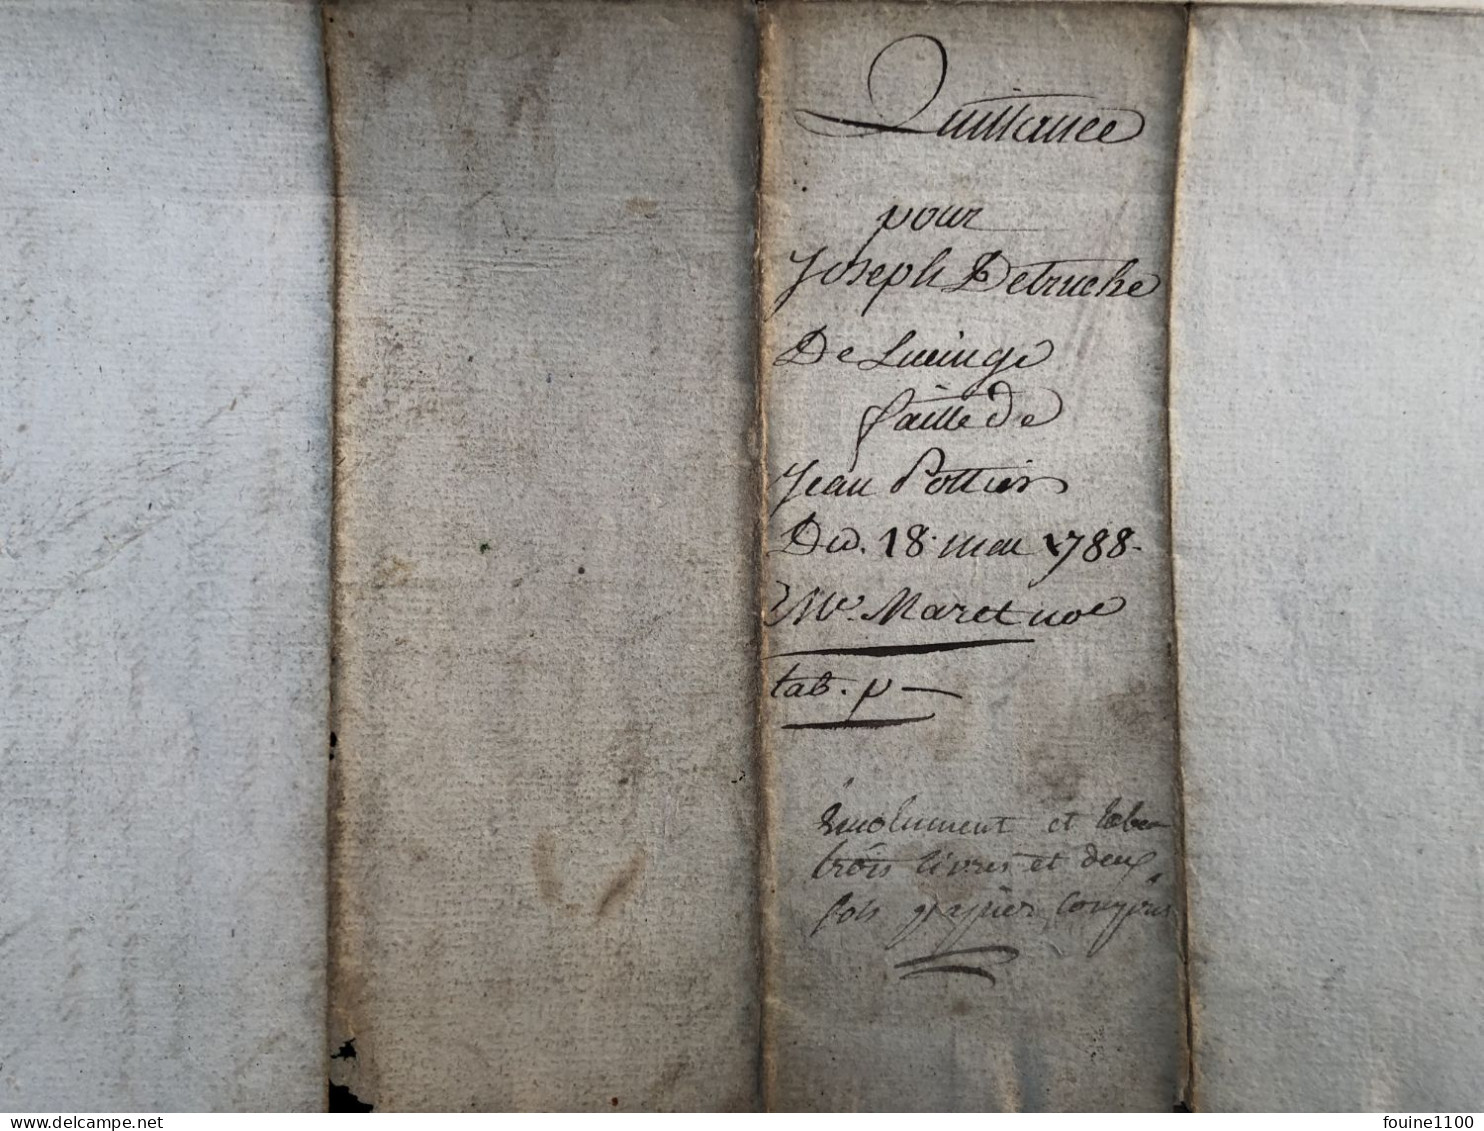 Quittance
pour
Joseph Detruche
De Lucinge
faitte de
Jean Pottier
Du. 18. mai 1788.
Me. Maret noe
tab. p
Emolument et
trois livres et deux
sols papier compris
fouine1100